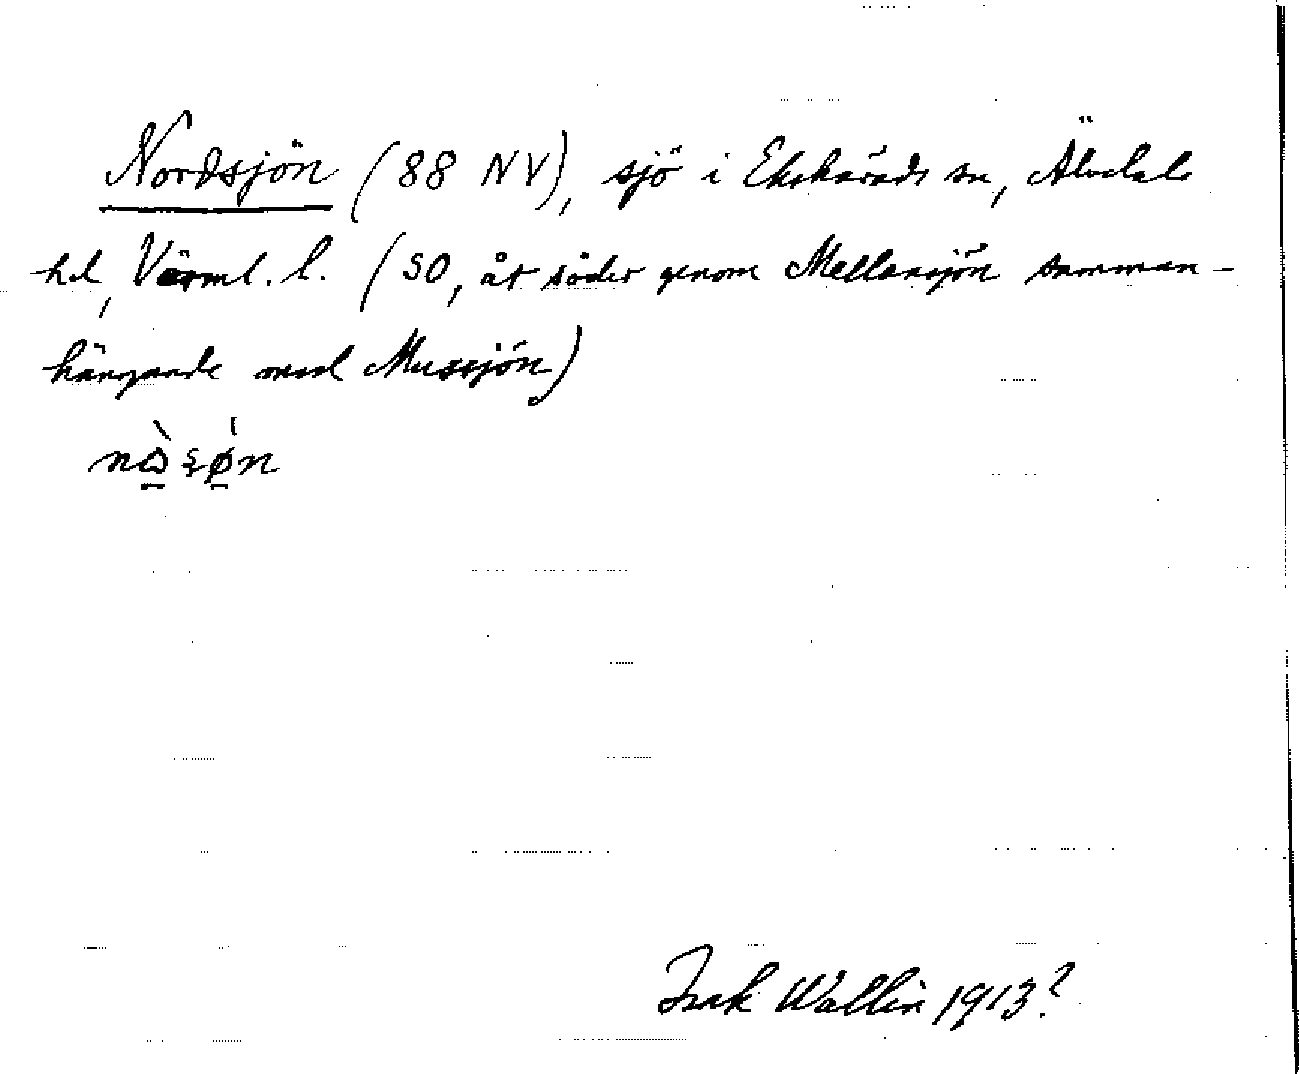 Nordsjön (88 NV), sjö i Ekshärads sn, Älvdals
hd, Värml. l. (SO, åt söder genom Mellansjön samman-
hängande med Mussjön)
Isak Wallin 1913?